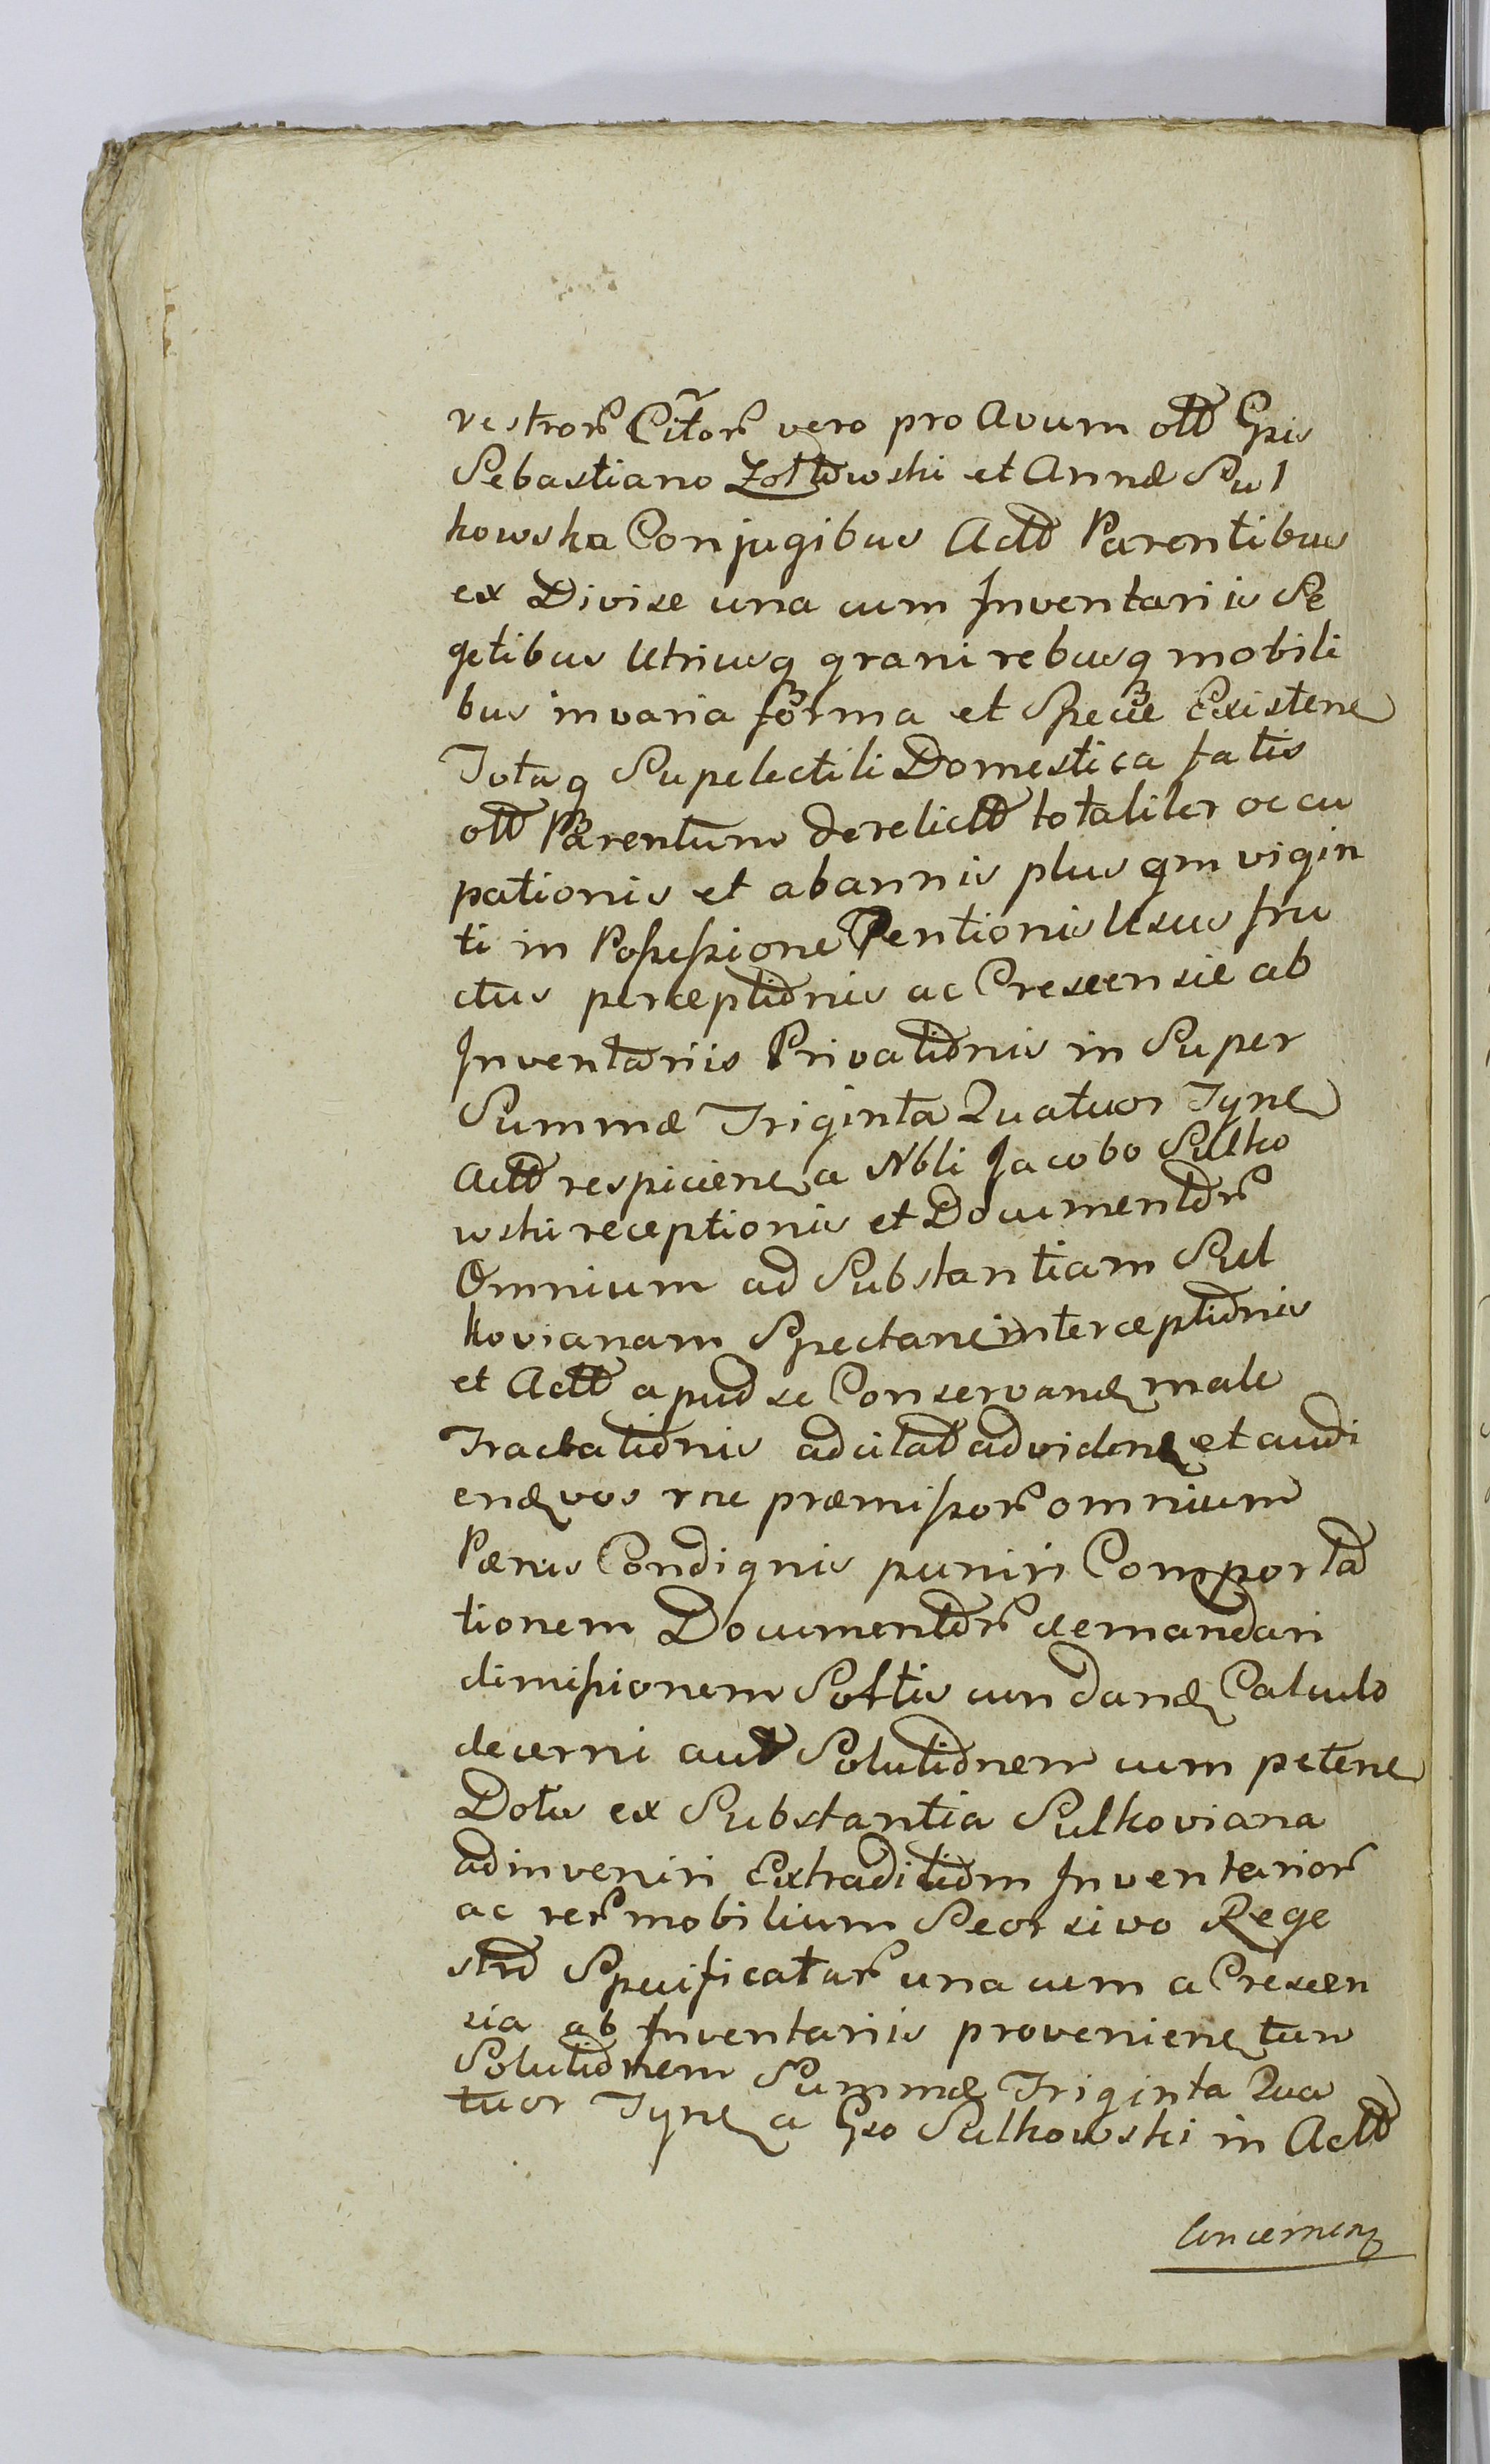 vestror Citor vero pro Avum oltt Gsis
Sebastiano Zołtowski et Annæ Sul
kowska Conjugibus Actt Parentibus
ex Divise una cum Inventariis Se
getibus Utriusq grani rebusq mobili
bus in varia forma et Specie Existene
Totaq Supelectili Domestica fatis
oltt Parentum derelictt totaliter occu
pationis et ab annis plus qm vigin
ti in Possessione Tentionis Usus fru
ctus perceptionis ac Crescensie ab
Inventariis Privationis in Super
Summæ Triginta Quatuor Tyne
Actt respiciene a Nbli Jacobo Sulko
wski receptionis et Documentor
Omnium ad Substantiam Sul
kovianam Spectane interceptionis
et Actt apud se Conservand male
Tractationis adcitatt ad vidend et audi
end vos rne præmissor omnium
Pænis Condignis puniri Comporta
tionem Documentor demandari
dimissionem Softis cun dand Calculo
decerni aut Solutionem cum petene
Dotis ex Substantia Sulkoviana
adinveniri Extraditiom Inventarior
ac rer mobilium Seorsivo Rege
stro Specificatar una cum a Crescen
sia ab Inventariis proveniene tum
Solutionem Summæ Triginta Qua
tuor Tyne a Gso Sulkowski in Actt
Concernen